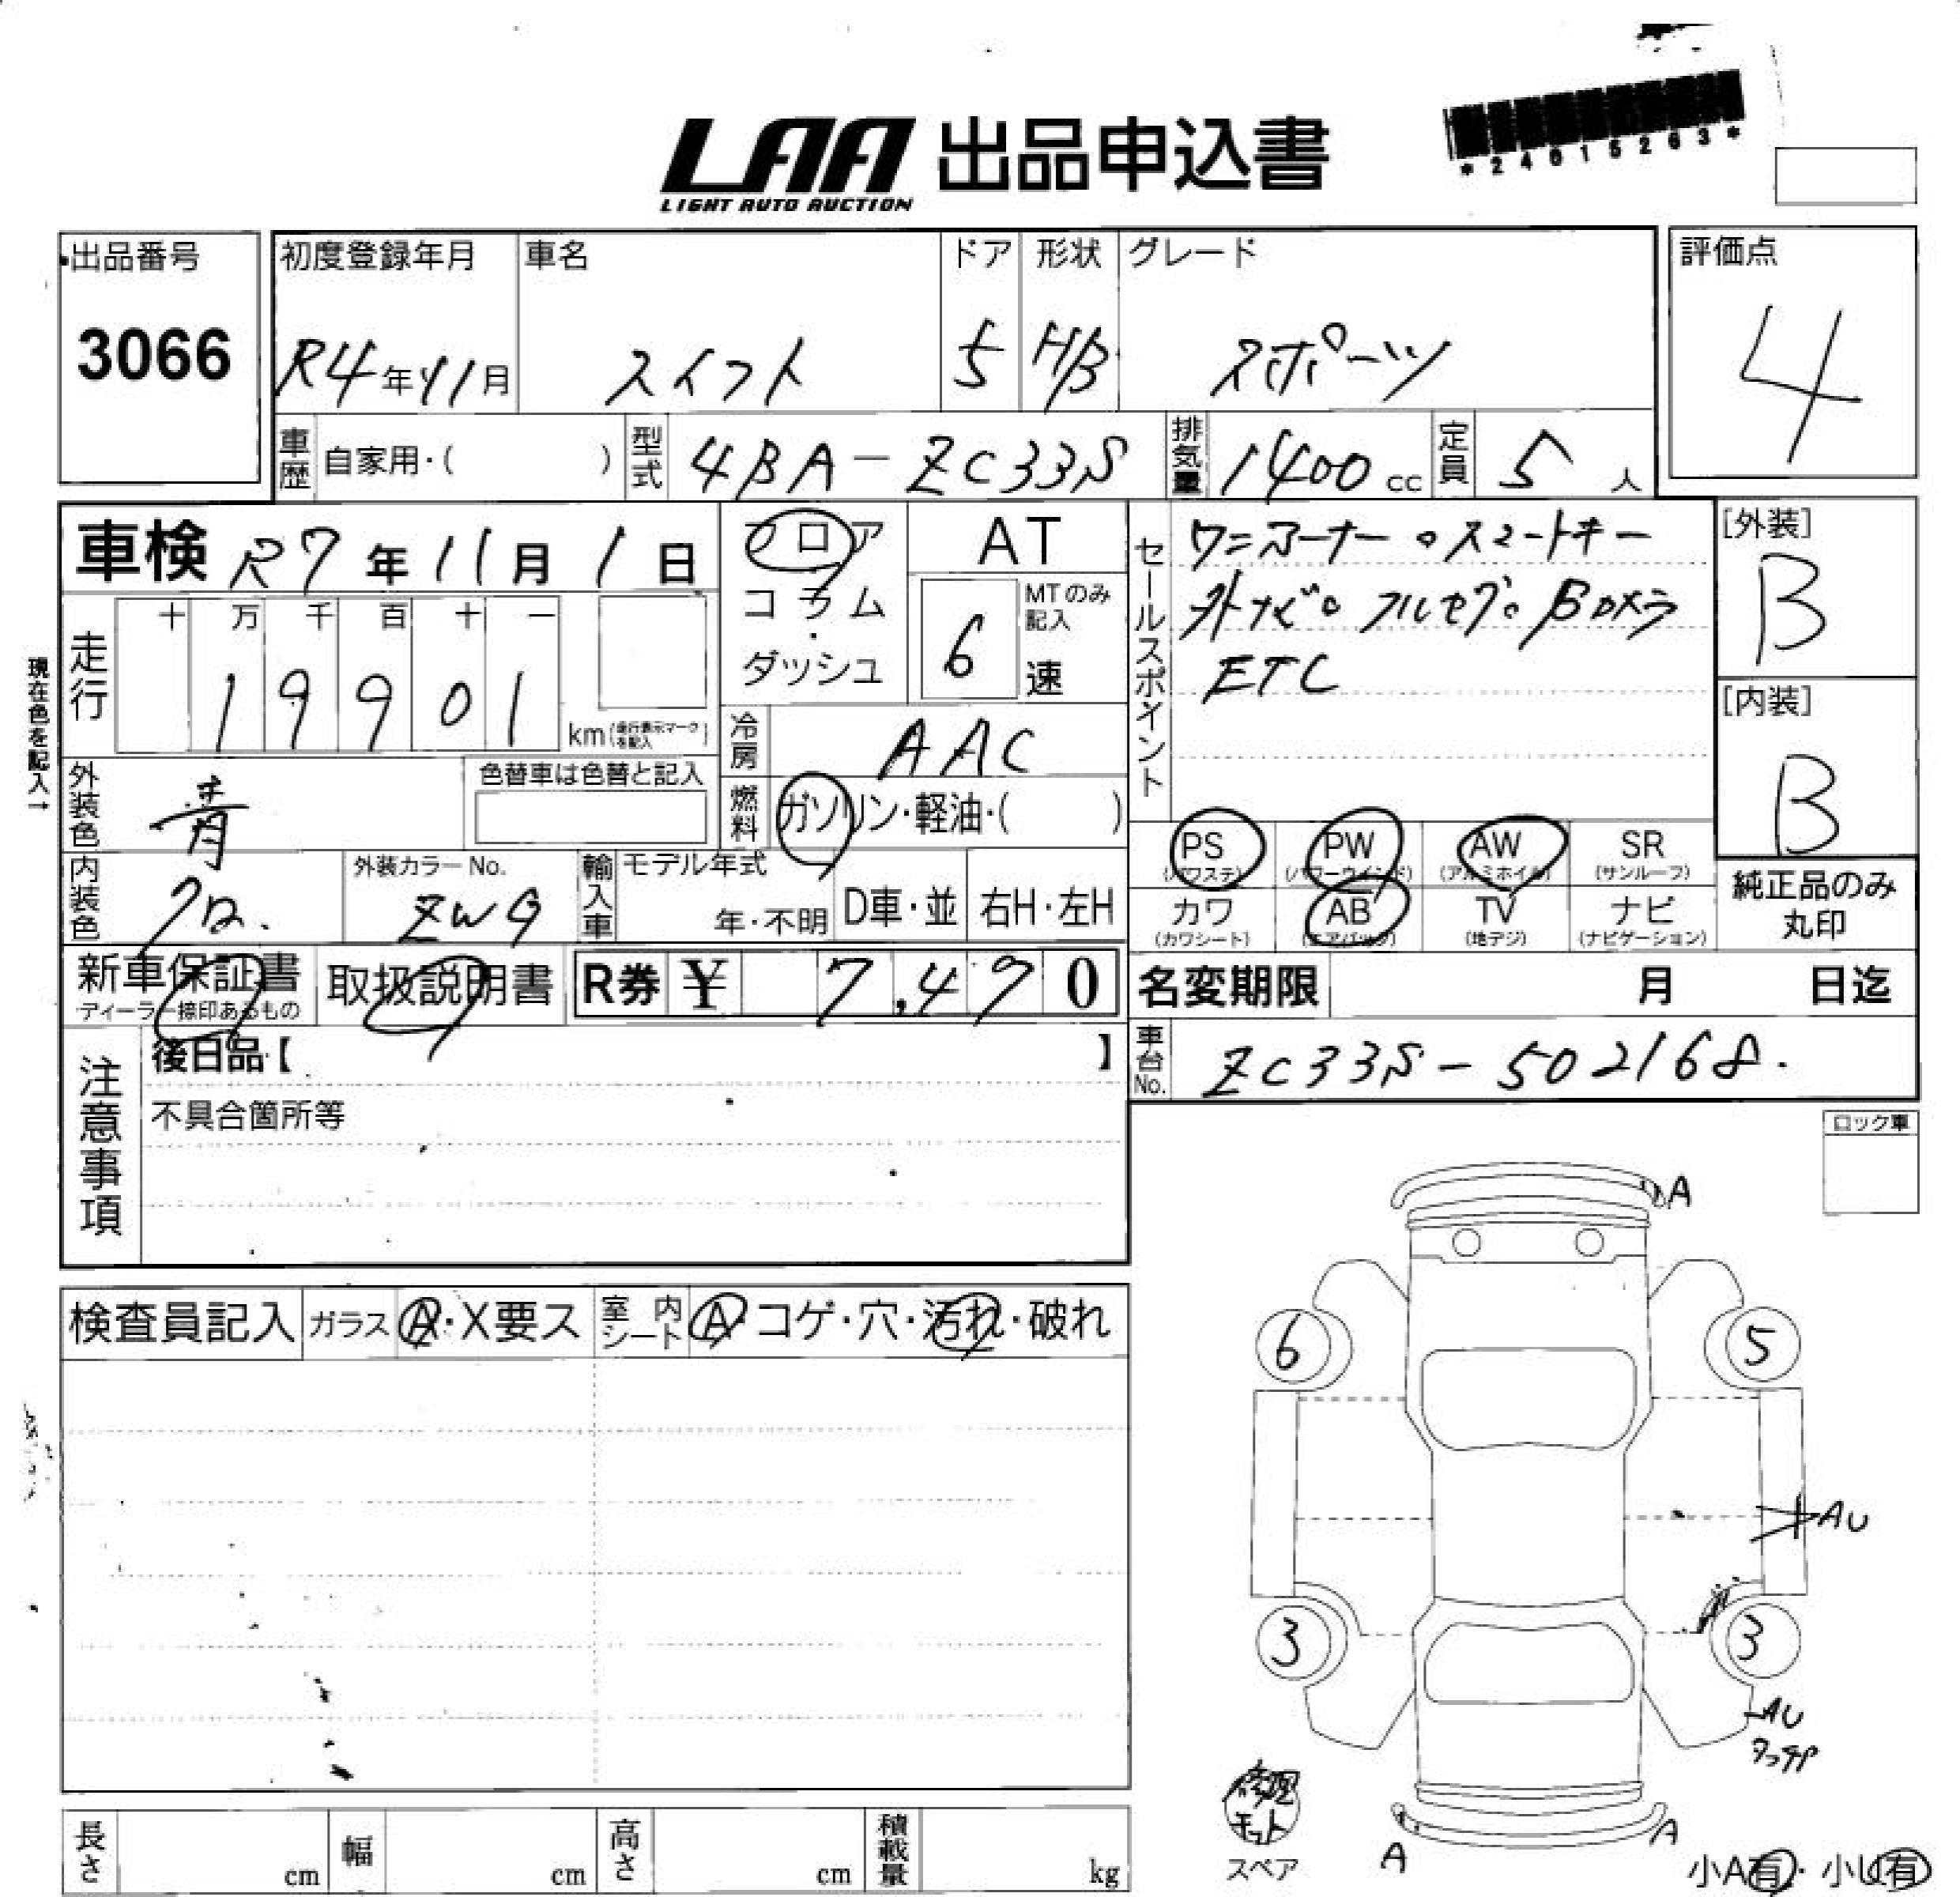 LAA 出品申込書
LIGHT AUTO AUCTION
*24015263*
出品番号
3066
初度登録年月
R4年11月
車名
スイフト
ドア
5
形状
H/B
グレード
スポーツ
評価点
4
車歴
自家用・( )
型式
4BA-ZC33S
排気量
1400cc
定員
5人
車検 R7年11月1日
フロア
コラム
・
ダッシュ
AT
MTのみ記入
6速
セールスポイント
ワンオーナー。スマートキー
外ナビ。フルセグ。Bカメラ
ETC
[外装]
B
[内装]
B
現在色を記入→
走行
十 万 千 百 十 一
1 9 9 0 1
km(走行表示マークを記入)
冷房
AAC
燃料
ガソリン・軽油・( )
外装色
青
色替車は色替と記入
内装色
クロ.
外装カラーNo.
ZWG
輸入車
モデル年式
年・不明
D車・並
右H・左H
PS
(パワステ)
PW
(パワーウインド)
AW
(アルミホイル)
SR
(サンルーフ)
カワ
(カワシート)
AB
(エアバッグ)
TV
(地デジ)
ナビ
(ナビゲーション)
純正品のみ
丸印
新車保証書
ディーラー捺印あるもの
取扱説明書
R券 ¥ 7,490
名変期限 月 日迄
車台No.
ZC33S-502168.
注意事項
後日品【 】
不具合箇所等
ロック車
検査員記入
ガラス
A・X要ス
室内シート
A・コゲ・穴・汚れ・破れ
A
6
5
AU
3
3
AU
タッチP
修理
キット
スペア
A
A
小A有・小U有
長さ cm
幅 cm
高さ cm
積載量 kg